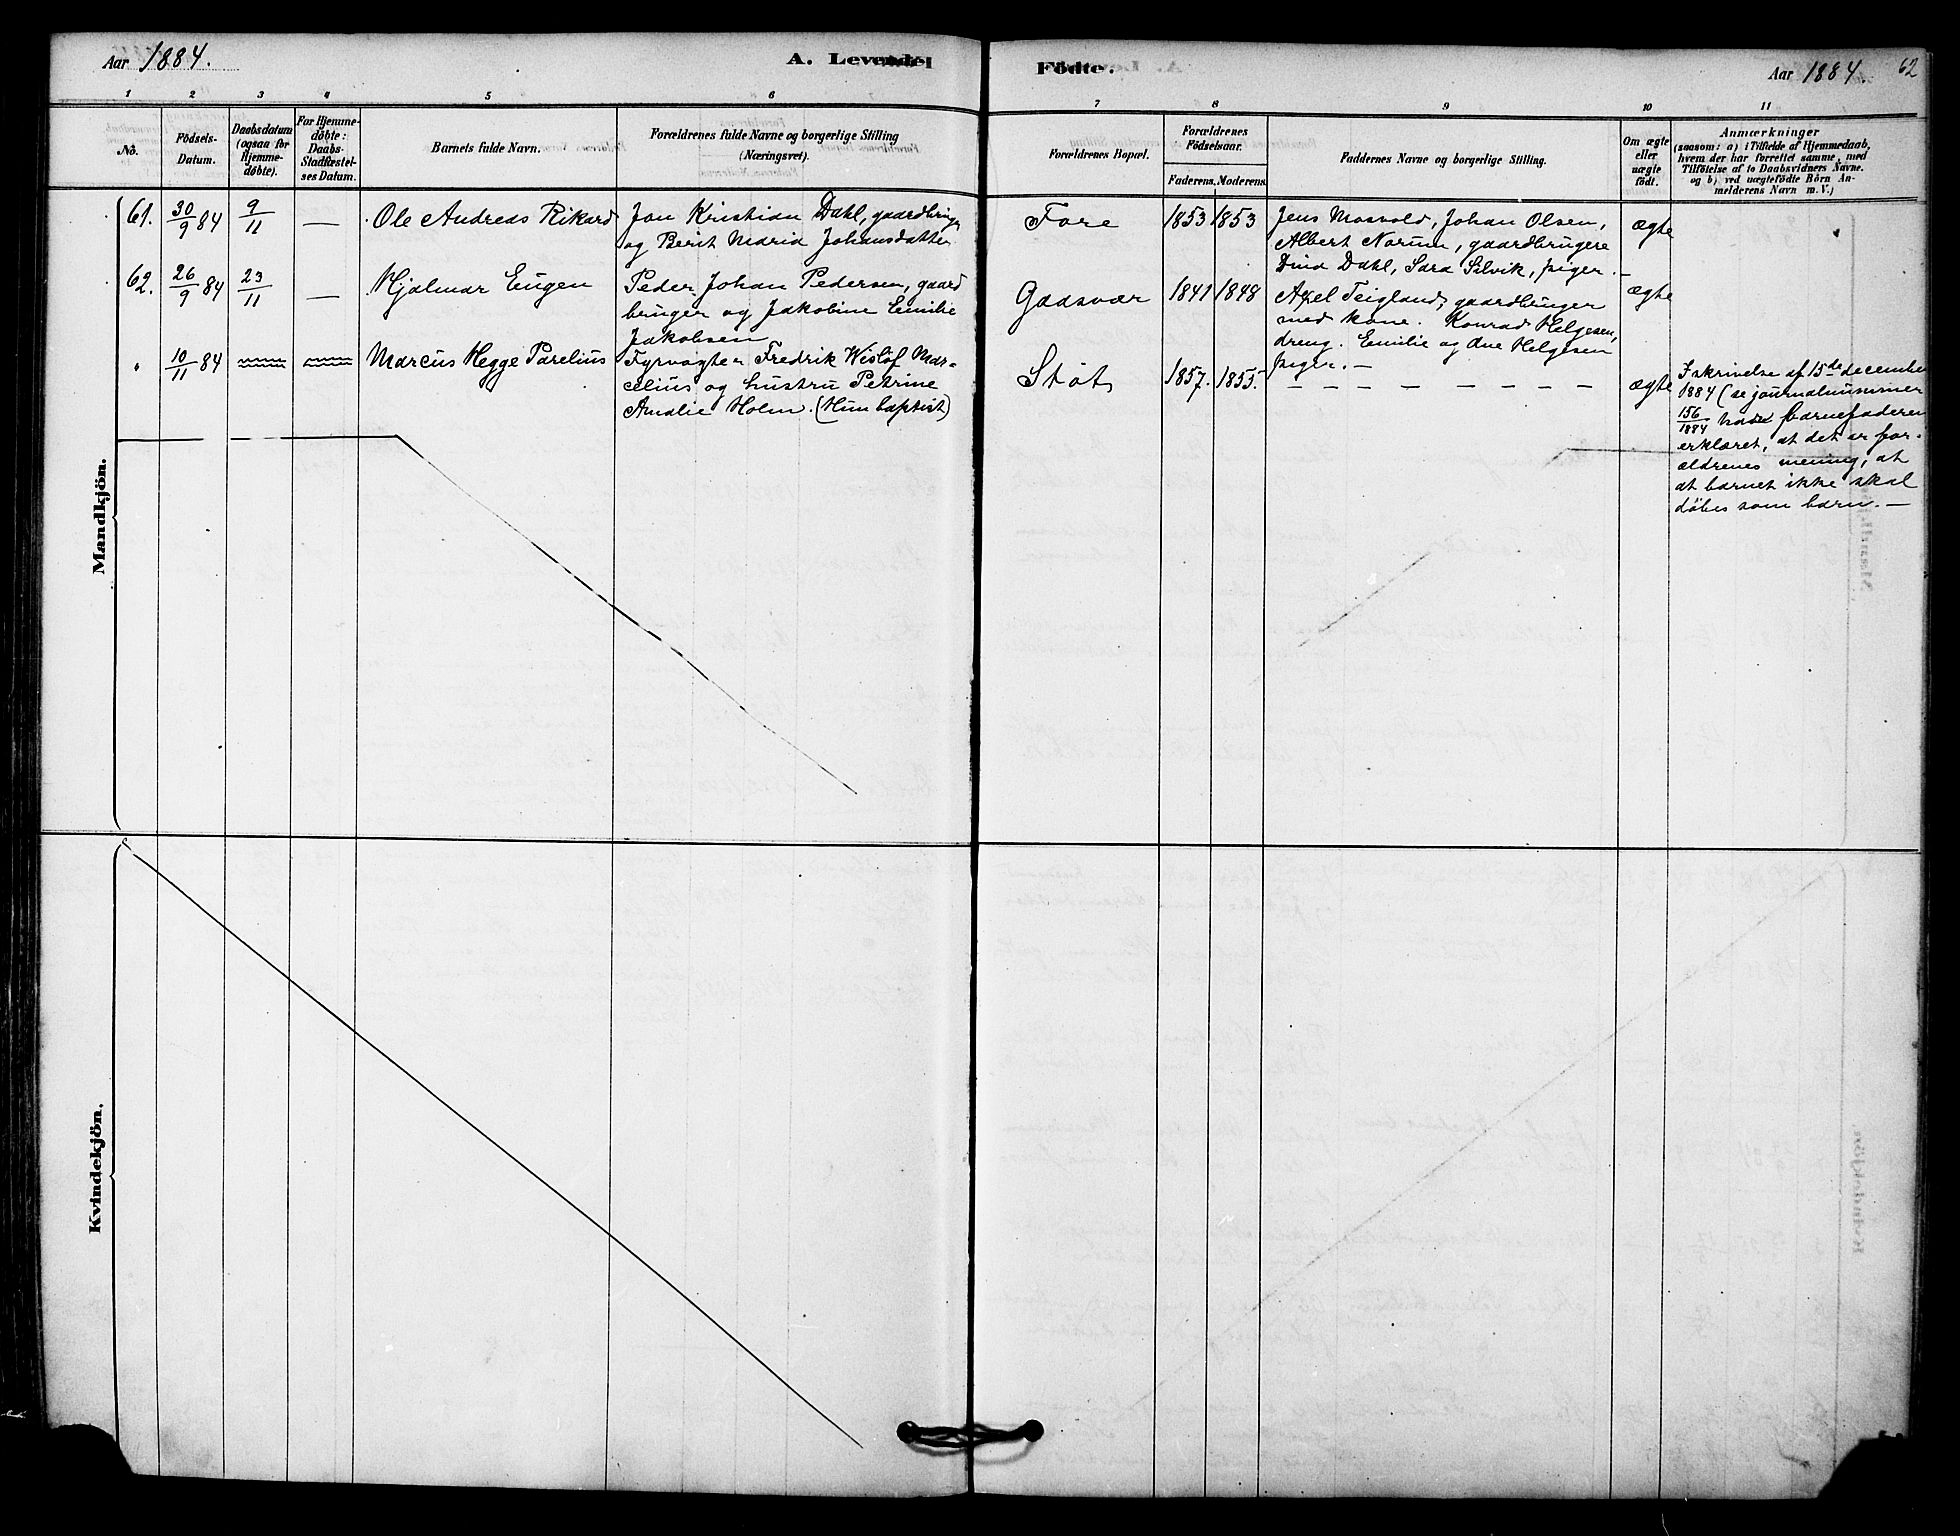 Aar 1884.
A. Levende
Födte.
Aar 1884.
62
1 2 3 4 5 6 7 8 9 10 11
No.
Födsels-
Datum.
Daabsdatum
(ogsaa for
Hjemme-
döbte).
For Hjemme-
döbte:
Daabs-
Stadfæstel-
ses Datum.
Barnets fulde Navn.
Forældrenes fulde Navne og borgerlige Stilling
(Næringsvei).
Forældrenes Bopæl.
Forældrenes
Födselsaar.
Faderens. Moderens.
Faddernes Navne og borgerlige Stilling.
Om ægte
eller
uægte
født.
Anmærkninger
(saasom: a) i Tilfælde af Hjemmedaab,
hvem der har forrettet samme, med
Tilföielse af to Daabsvidners Navne.
og b) ved uægtefödte Börn An-
melderens Navn m. V.)
Mandkjön.
61. 30/9 84 9/11 — Ole Andreas Rikard
Jon Kristian Dahl, gaardbruger
og Berit Maria Johansdatter
Fore 1853 1853
Jens Mosvold, Johan Olsen,
Albert Norum, gaardbrugere
Dina Dahl, Sara Selvik, piger. —
ægte
62. 26/9 84 23/11 — Hjalmar Eugen
Peder Johan Pedersen, gaard
bruger og Jakobine Emilie
Jakobsen
Gaasvær 1841 1848
Axel Teigland, gaardbruger
med kone. Konrad Helgesen,
dreng. Emilie og Ane Helgesen
piger. —
ægte
" 10/11 84 Marcus Hegge Parelius
Fyrvogter Fredrik Wisløf Mar-
celius og hustru Petrine
Amalie Holm. (Hun baptist)
Støt 1857. 1855.
— — — — — — — —
ægte
I skrivelse af 15de december
1884 (se journalnummer
156/1884 barnefaderen
erklæret, at det er for-
ældrenes mening, at
at barnet ikke skal
döbes som barn. —
Kvindekjön.